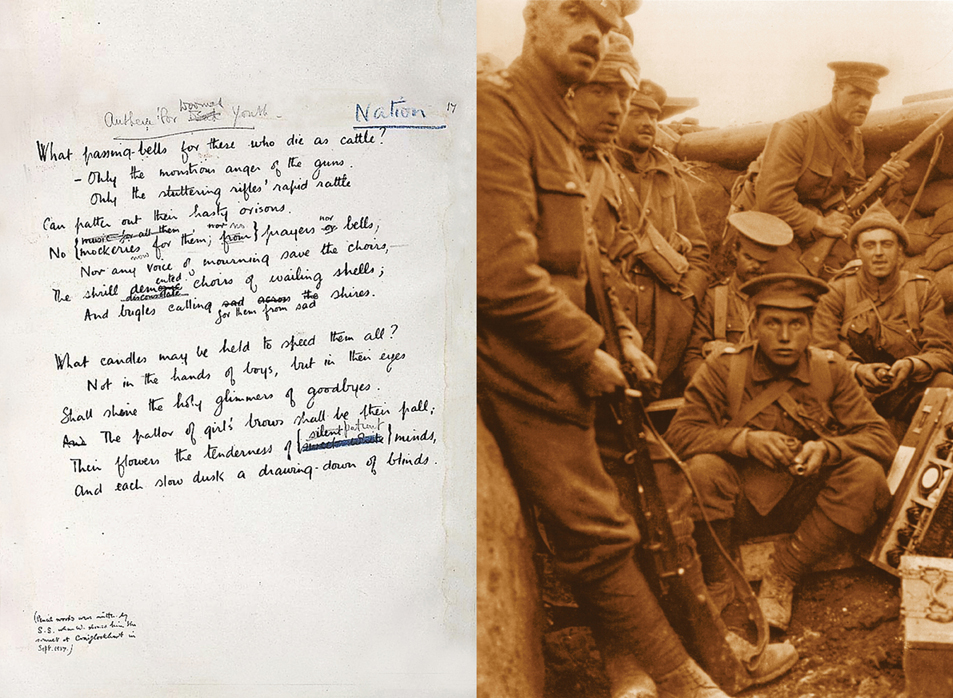 Doomed
Anthem for Dead Youth
Nation 17
What passing-bells for these who die as cattle?
- Only the monstrous anger of the guns.
Only the stuttering rifles' rapid rattle
Can patter out their hasty orisons.
No { music for all them nor
mockeries now for them; from } prayers nor or bells;
Nor any voice of mourning save the choirs, —
The shrill demented choirs of wailing shells;
disconsolate
And bugles calling sad across the shires.
for them from sad
What candles may be held to speed them all?
Not in the hands of boys, but in their eyes
Shall shine the holy glimmers of goodbyes.
And The pallor of girls' brows shall be their pall;
silent patient
Their flowers the tenderness of { } minds,
And each slow dusk a drawing-down of blinds.
(Pencil words were written by
S.S. when W. showed him the
sonnet at Craiglockhart in
Sept. 1917.)